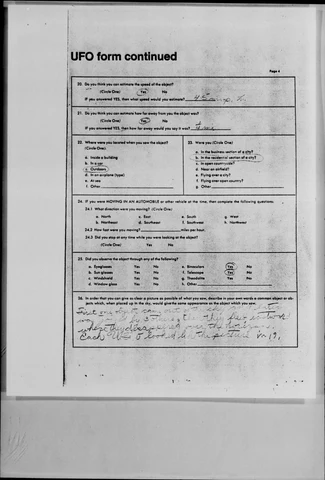 UFO form continued
Page 4
20. Do you think you can estimate the speed of the object?
(Circle One) Yes No
If you answered YES, then what speed would you estimate?
21. Do you think you can estimate how far away from you the object was?
(Circle One) Yes No
If you answered YES, then how far away would you say it was?
22. Where were you located when you saw the object?
(Circle One):
a. Inside a building
b. In a car
c. Outdoors
d. In an airplane (type)
e. At sea
f. Other
23. Were you (Circle One)
a. In the business section of a city?
b. In the residential section of a city?
c. In open countryside?
d. Near an airfield?
e. Flying over a city?
f. Flying over open country?
g. Other
24. If you were MOVING IN AN AUTOMOBILE or other vehicle at the time, then complete the following questions:
24.1 What direction were you moving? (Circle One)
a. North c. East e. South g. West
b. Northeast d. Southeast f. Southwest h. Northwest
24.2 How fast were you moving? miles per hour.
24.3 Did you stop at any time while you were looking at the object?
(Circle One) Yes No
25. Did you observe the object through any of the following?
a. Eyeglasses Yes No e. Binoculars Yes No
b. Sun glasses Yes No f. Telescope Yes No
c. Windshield Yes No g. Theodolite Yes No
d. Window glass Yes No h. Other
26. In order that you can give as clear a picture as possible of what you saw, describe in your own words a common object or objects which, when placed up in the sky, would give the same appearance as the object which you saw.
First one
Each